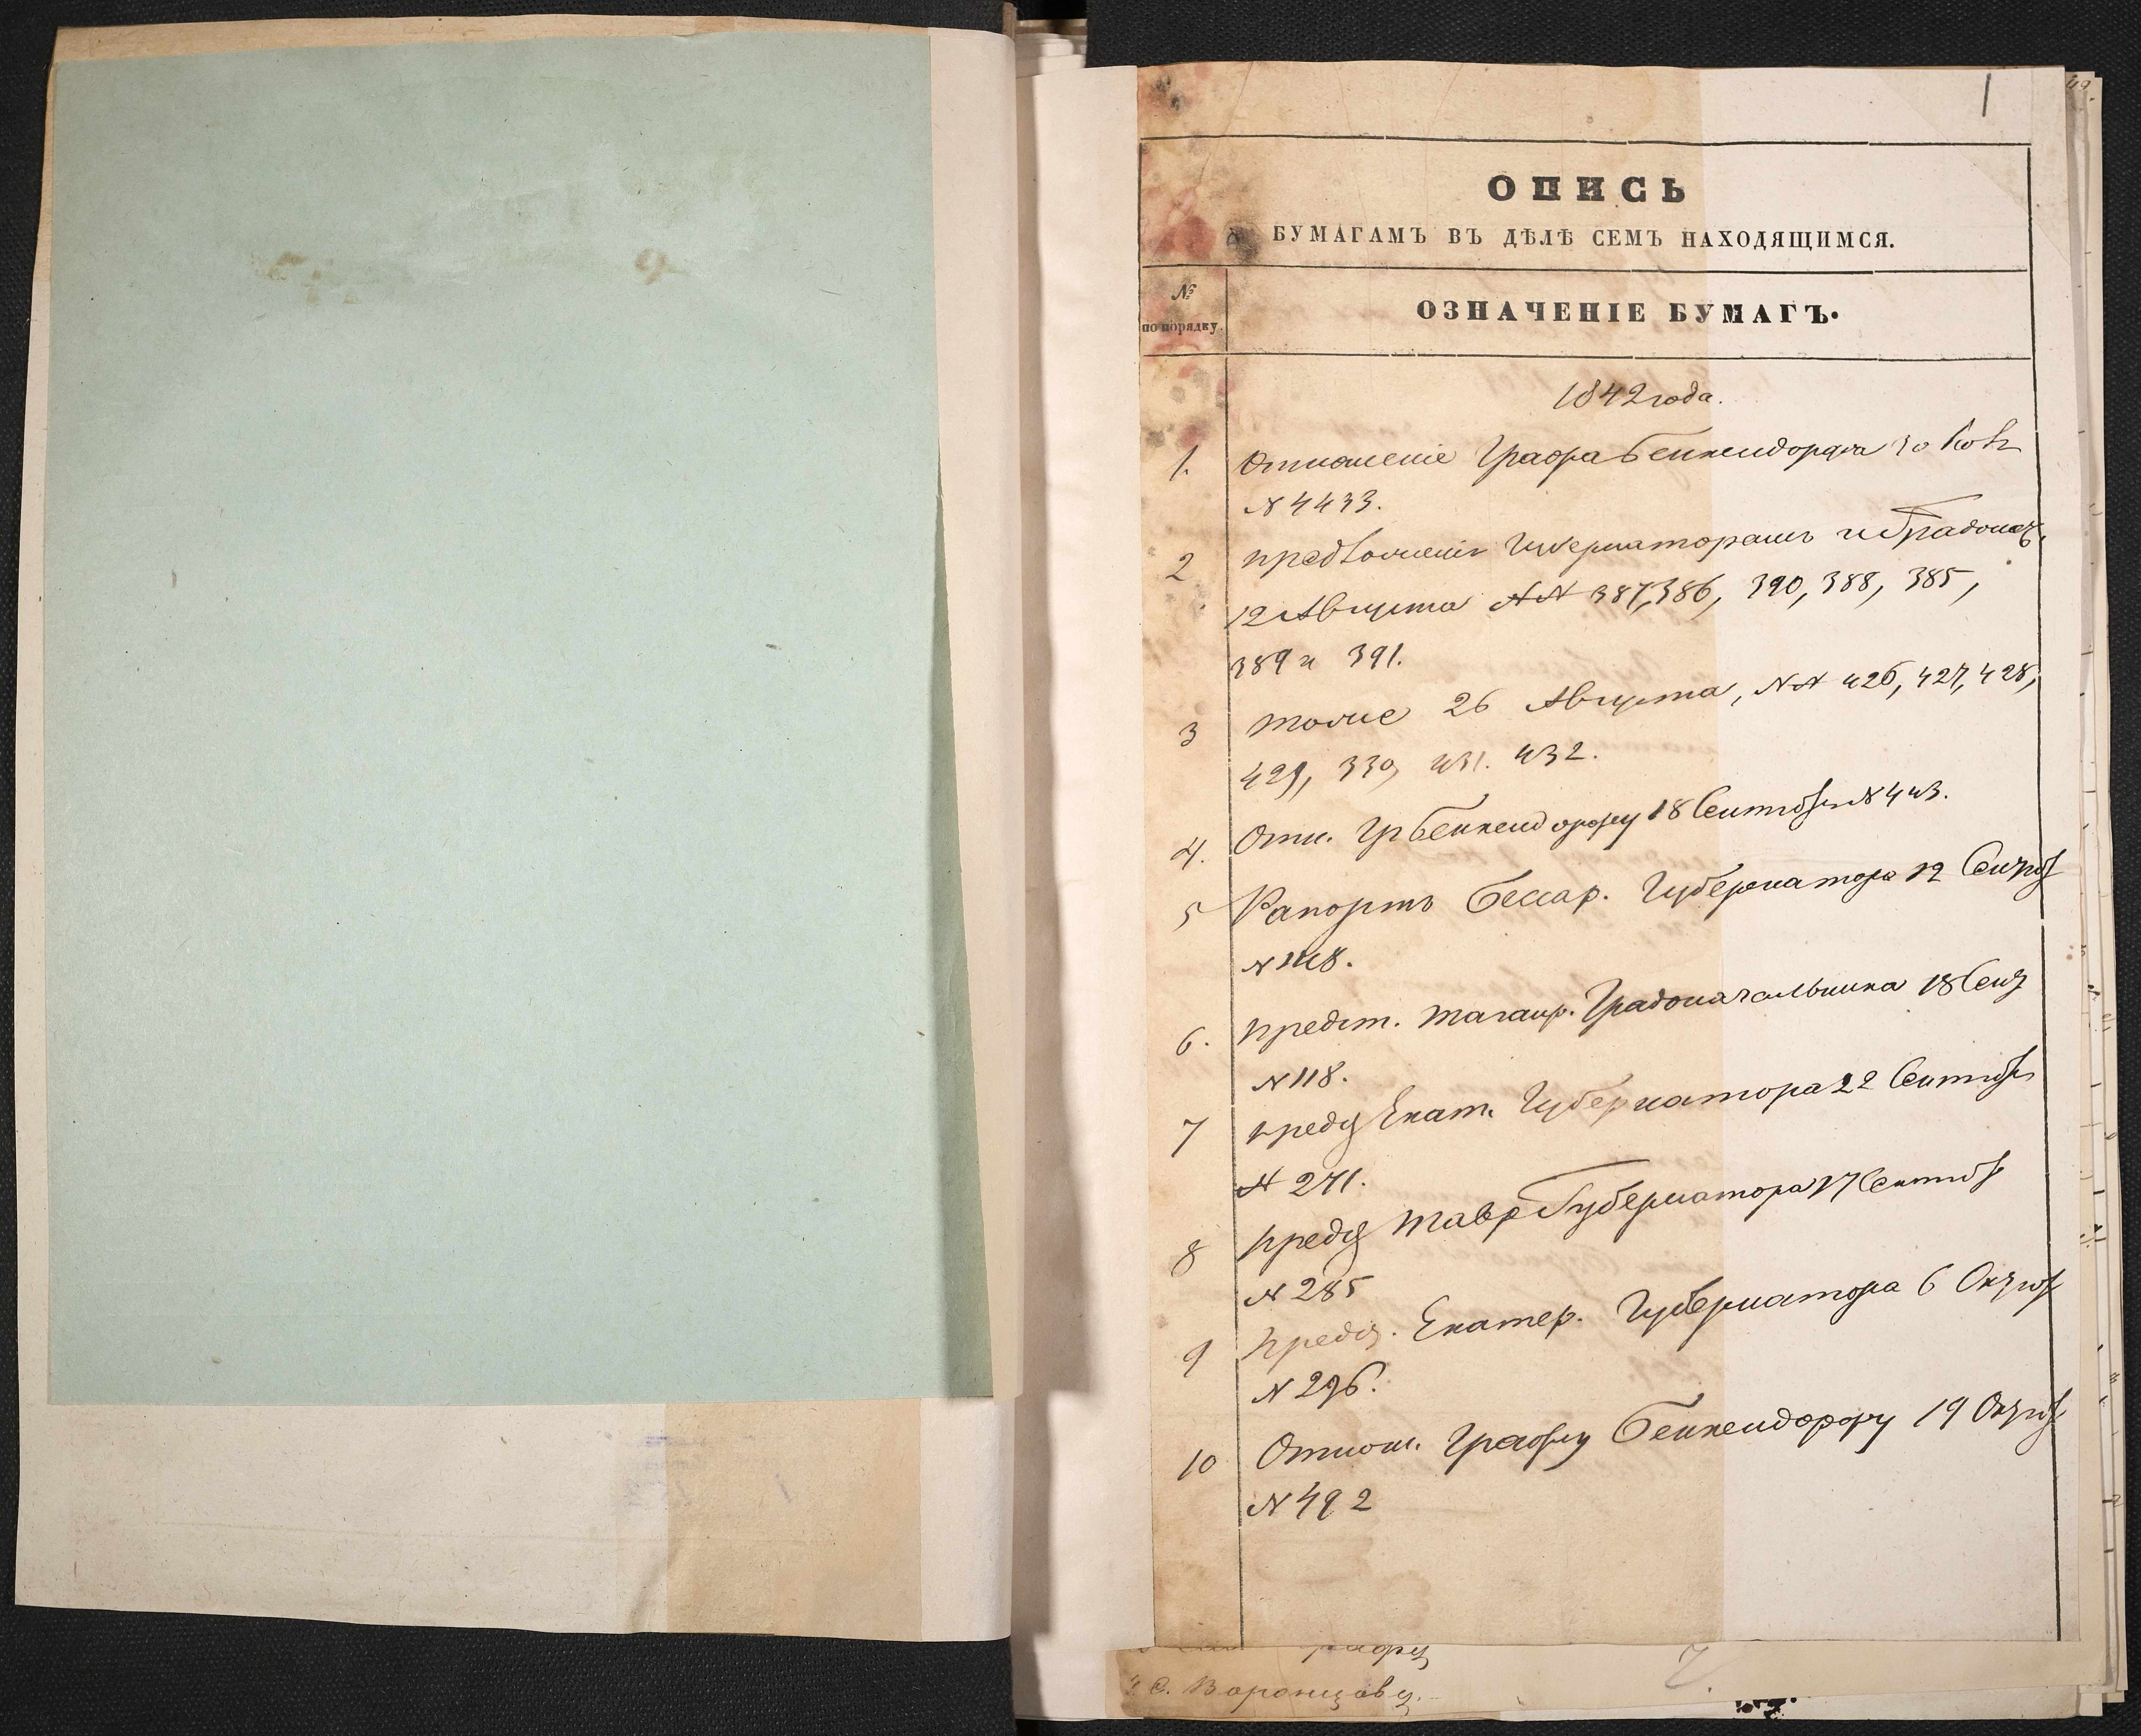 1
ОПИСЬ
БУМАГАМЪ ВЪ ДѢЛѢ СЕМЪ НАХОДЯЩИМСЯ.
№ по порядку.
ОЗНАЧЕНІЕ БУМАГЪ.
1842 года.
1. Отношеніе Графа Бенкендорфа 30
N 4433.
2 предложеніи Губернаторамъ и Градонач.
12 Августа NN 387, 386, 390, 388, 385,
389 и 391.
3 тоже 26 Августа, NN 426, 427, 428,
429, 330, 431. 432.
4. Отн. Гр Бенкендорфу 18 Сентябр N 443.
5 Рапортъ Бессар. Губернатора 12 Сентяб
6. предст. Таганр. Градоначальника 18 Сен
N 118.
7 пред Екат. Губернатора 22 Сентяб
N 271.
8 пред Тавр Губернатора 17 Сентяб
N 285
9 пред. Екатер. Губернатора 6 Октяб
N 296.
10 Отнош. Графу Бенкендорфу 19 Октяб
N 492
графу
С. Воронцову.